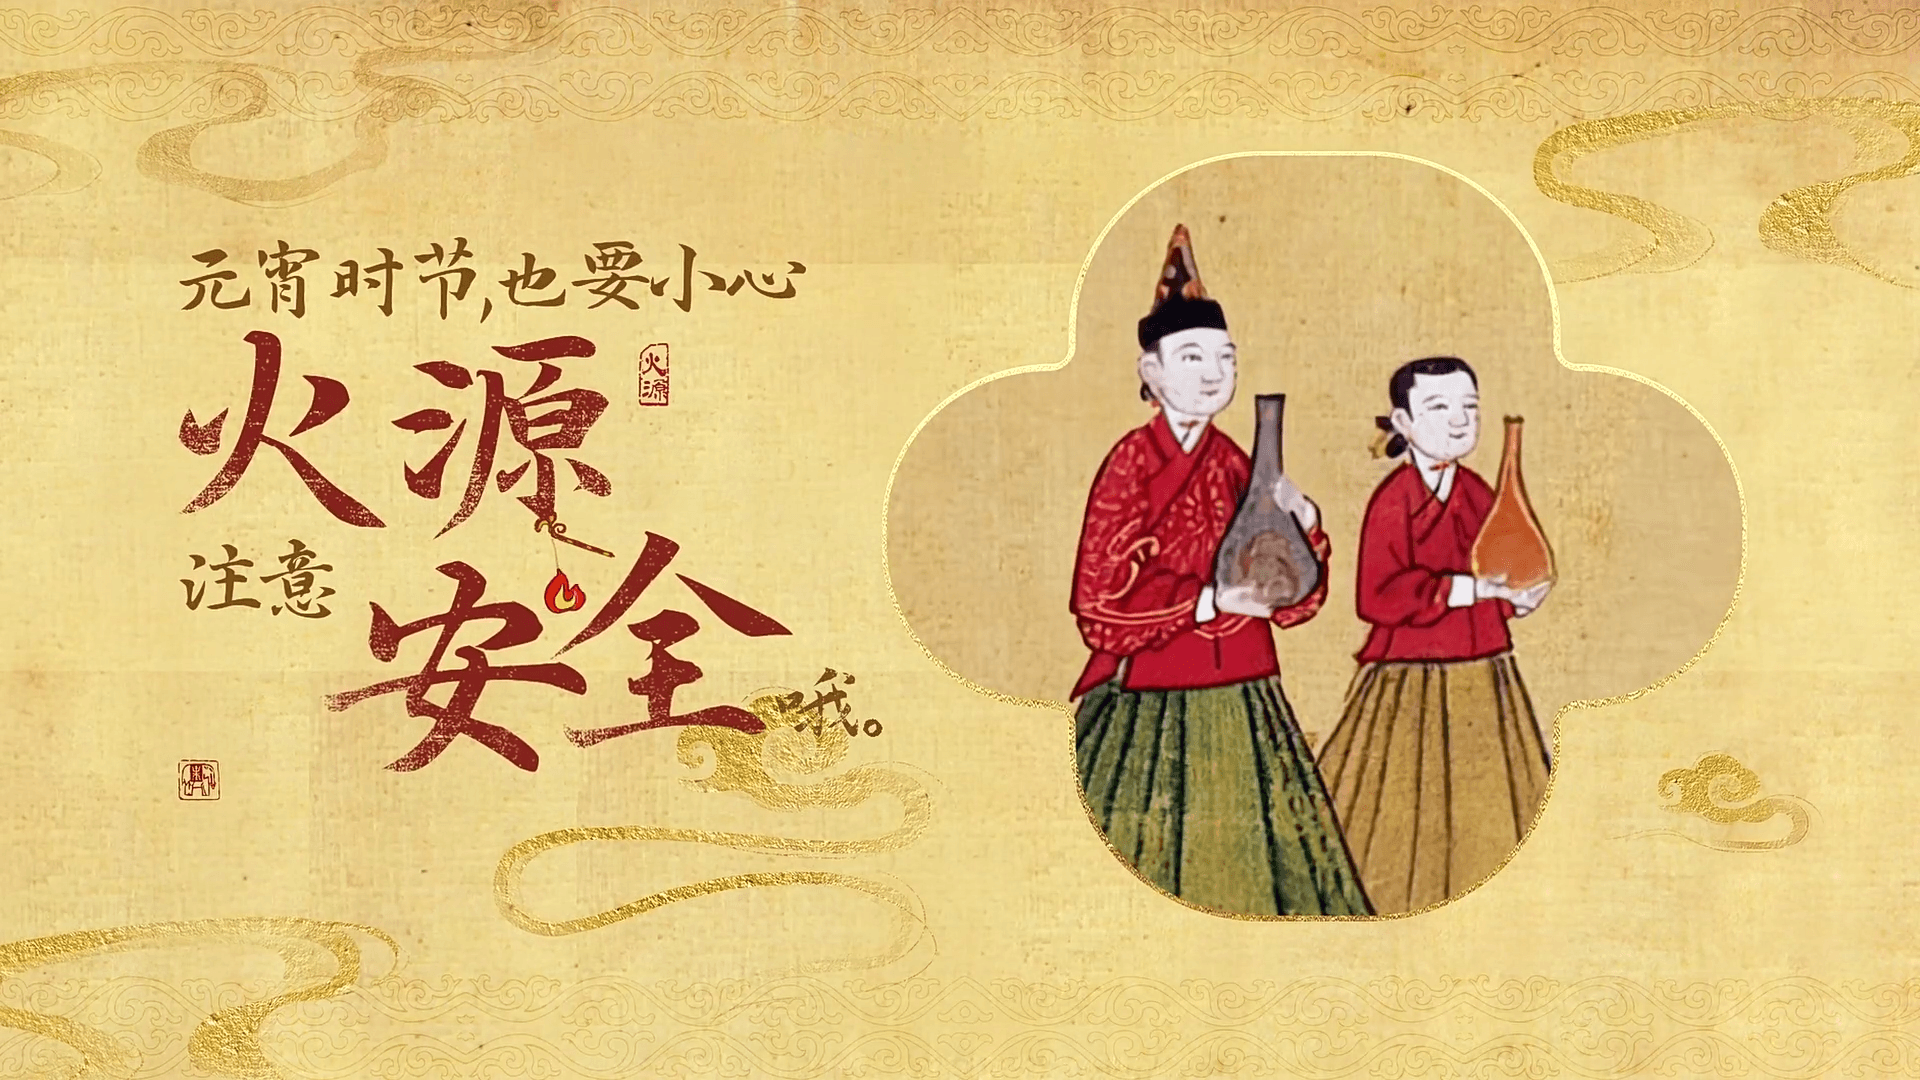 元宵时节,也要小心
火源
火源
注意
安全
哦。